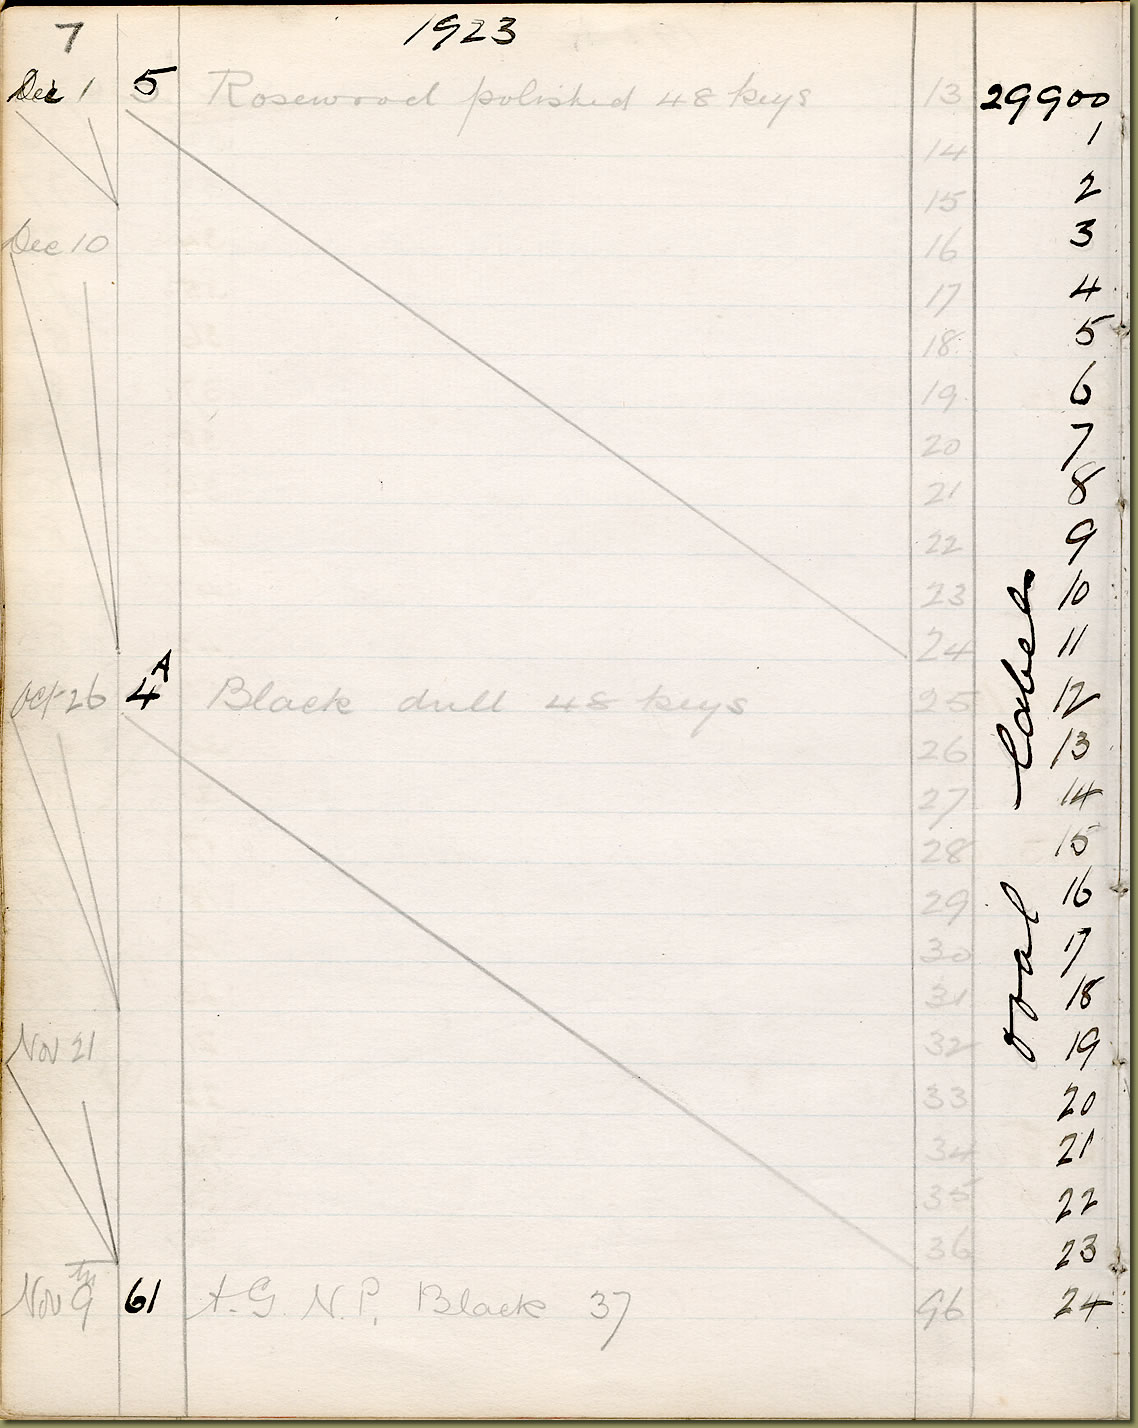 7 1923
Dec 1 5 Rosewood polished 48 keys 13 29900
14 1
15 2
Dec 10 16 3
17 4
18 5
19 6
20 7
21 8
22 9
23 10
24 11
Oct 26 4A Black dull 48 keys 25 12
26 13
27 14
28 15
29 16
30 17
31 18
Nov 21 32 19
33 20
34 21
35 22
36 23
Nov 9th 61 A.G. N.P. Black 37 96 24
oval Labels